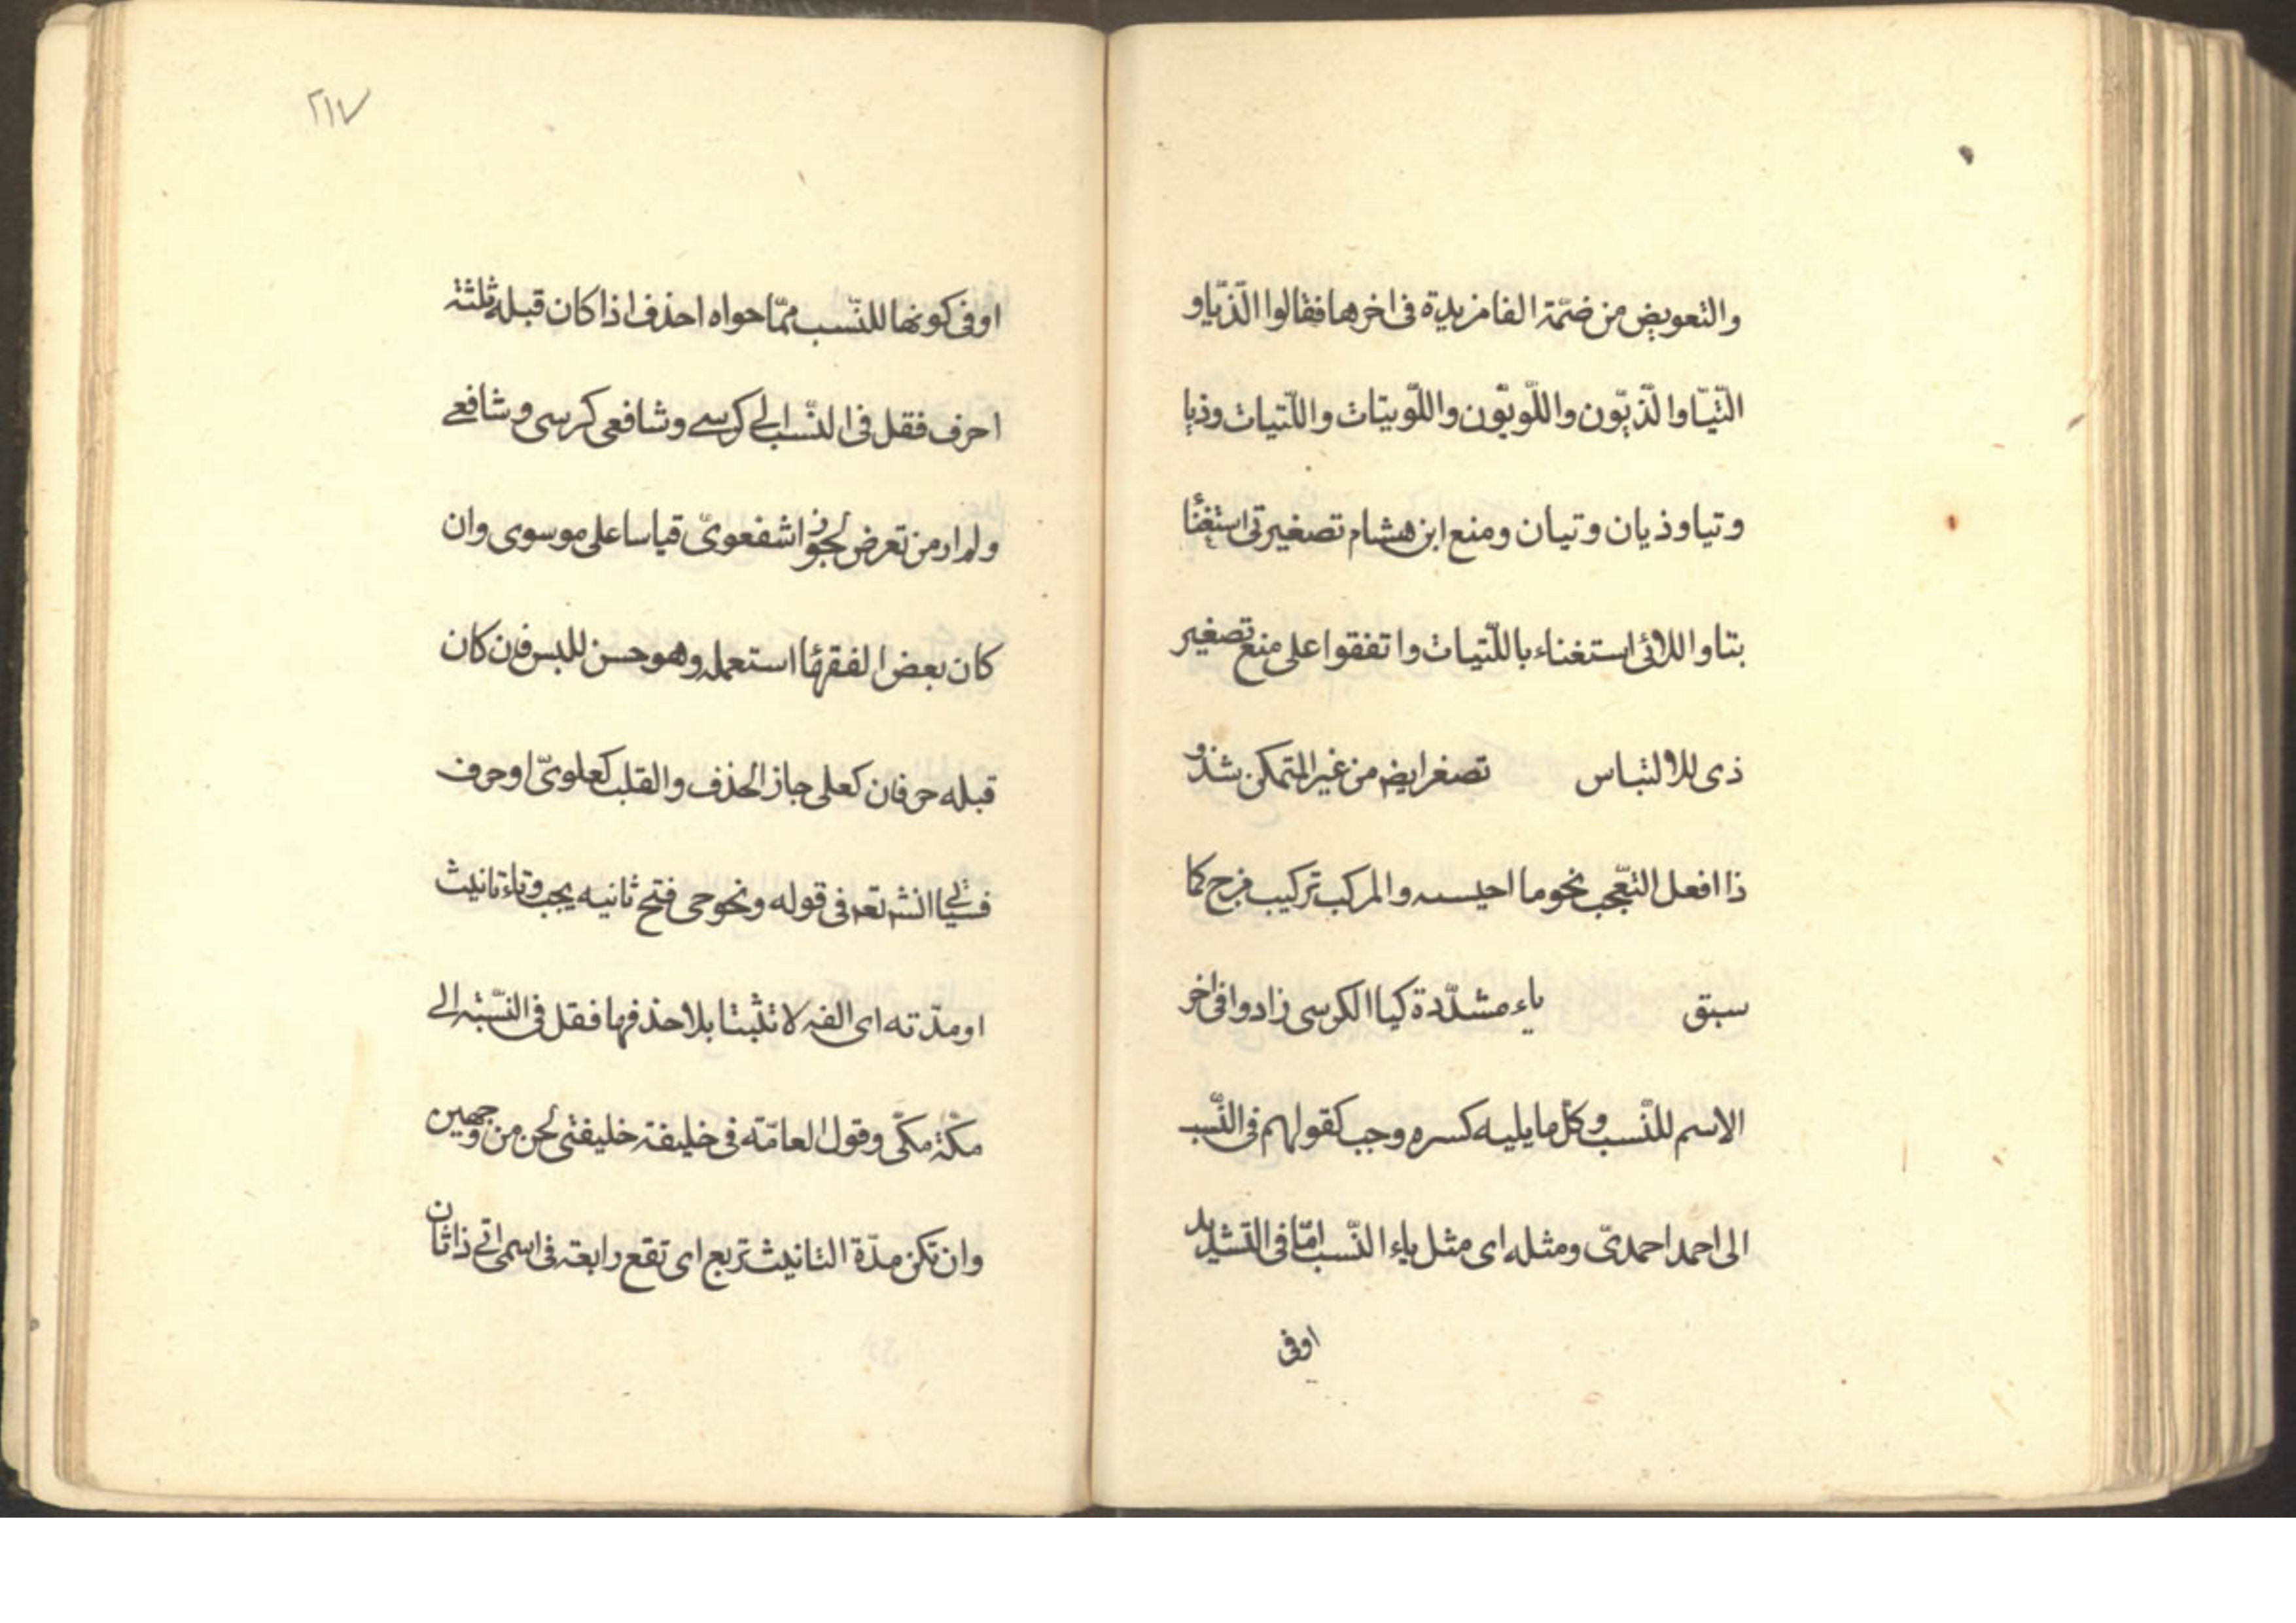 والتعويض من ضمّة الفا مزيدة فى اخرها فقالوا الّذيّا و
اللّتيّا والّذيّون واللّويّون واللّويتات واللّتيات وذيا
وتيا وذيان وتيان ومنع ابن هشام تصغير تى استغنأ
بتا واللائى استغناء باللّتيات واتفقوا على منع تصغير
ذى للالتباس تصغر ايضم من غير المتمكن بشذو
ذ افعل التعّجب نحو ما احيسنه والمركب تركيب مزج كما
سبق ياء مشدّدة كيا الكرسى زادوا فى اخر
الاسم للنّسب وكل ما يليه كسره وجب كقولهم فى النّسب
الى احمد احمدىّ ومثله اى مثل ياء النّسب امّا فى التشديد
اوفى
٢١٧
اوفى كونها للنّسب ممّا حواه احذف اذا كان قبله ثلثة
احرف فقل فى النّسب الى كرسے وشافعى كرسى وشافعے
ولم ار من تعرض لجواز شفعوىّ قياسا على موسوى وان
كان بعض الفقهٔا استعمله وهو حسن للبس فان كان
قبله حرفان كعلى جاز الحذف والقلب كعلوىّ او حرف
فسيأتى انشٓ تعم فى قوله ونحو حى فتح ثانيه يجب وتاء تانيث
او مدّته اى الفه لا تثبتا بلا حذفها فقل فى النّسبة الى
مكّة مكّى وقول العامّته فى خليفة خليفتى لحن من وجهين
وان تكن مدّة التانيث تربع اى تقع رابعة فى اسمى اتى ذا ثان